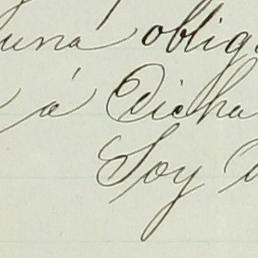 una oblig
á Dicha
Soy